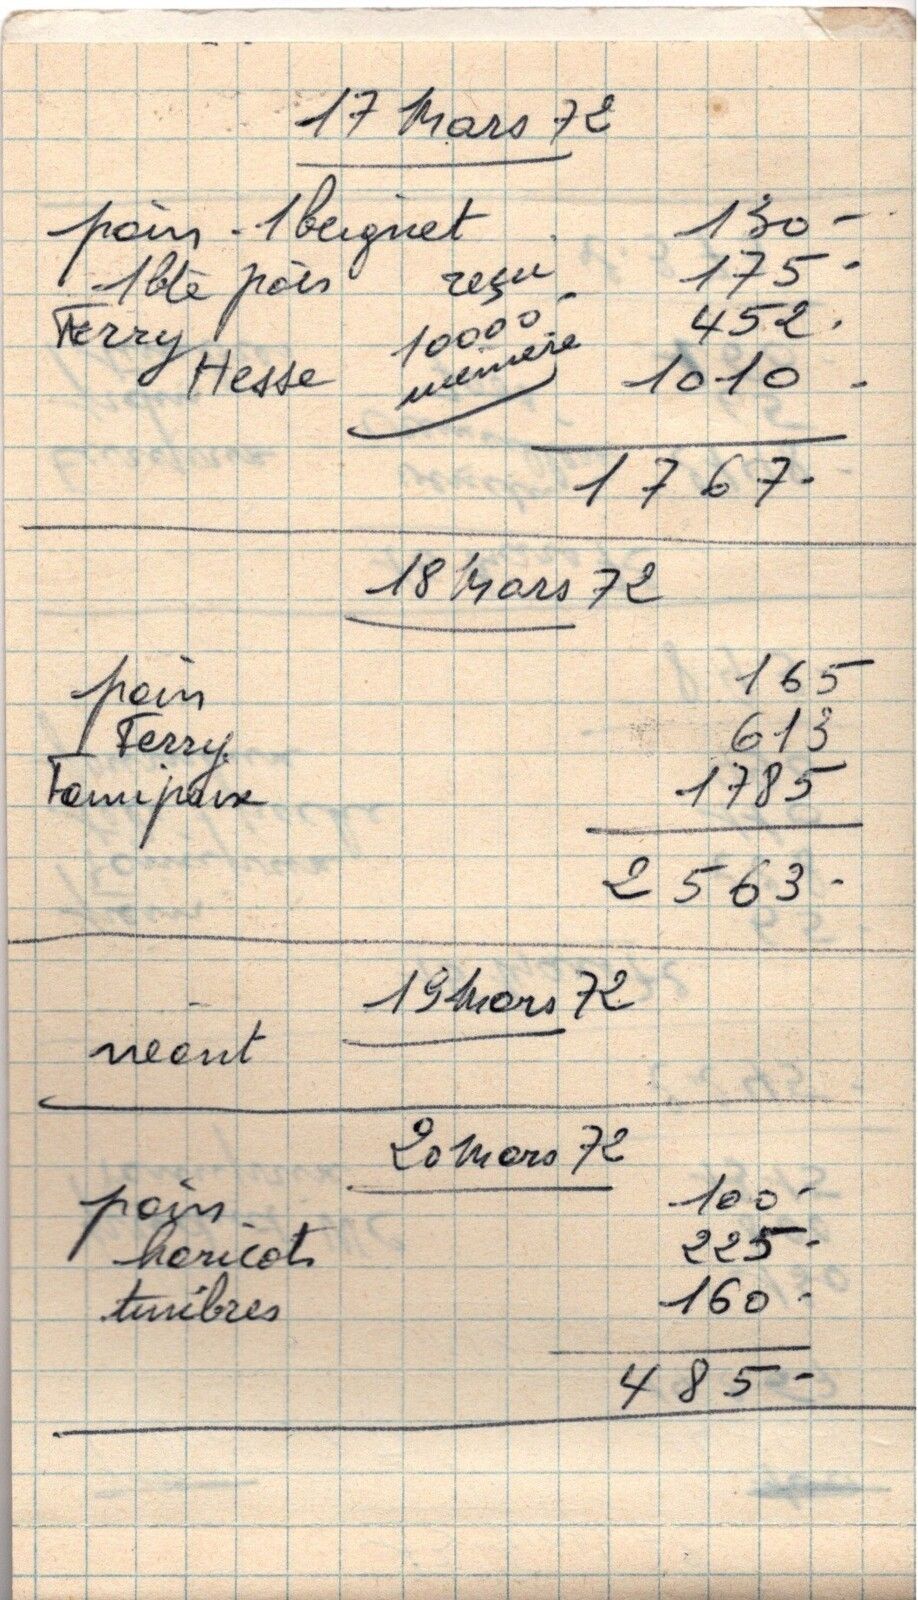 17 Mars 72
pain - 1 beignet 130-
1 bte pois reçu 175-
Ferry 10000- 452.
Hesse mémère 1010-
1767-
18 Mars 72
pain 165
Ferry 613
Familpaux 1785
2563-
19 Mars 72
néant
20 Mars 72
pain 100-
haricots 225-
timbres 160-
485-